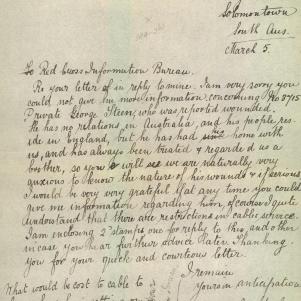 Solomontown
South Aus.
March 5.
To Red Cross Information Bureau.
Re your letter of in reply to mine. I am very sorry you
could not give me more information concerning No 3715
Private George Steen, who was reported wounded.
He has no relations in Australia, and his people res-
ide in England, but he has had home with
us, and has always been treated & regarded as a
brother, so you will see we are naturally very
anxious to know the nature of his wounds & if serious
I would be very very grateful if at any time you could
give me information regarding him, of course I quite
understand that there are restrictions in cable service.
I am enclosing 2 stamps one for reply to this, and other
in case you hear further advice later. Thanking
you for your quick and courteous letter.
I remain
Yours in anticipation
What would be cost to cable to